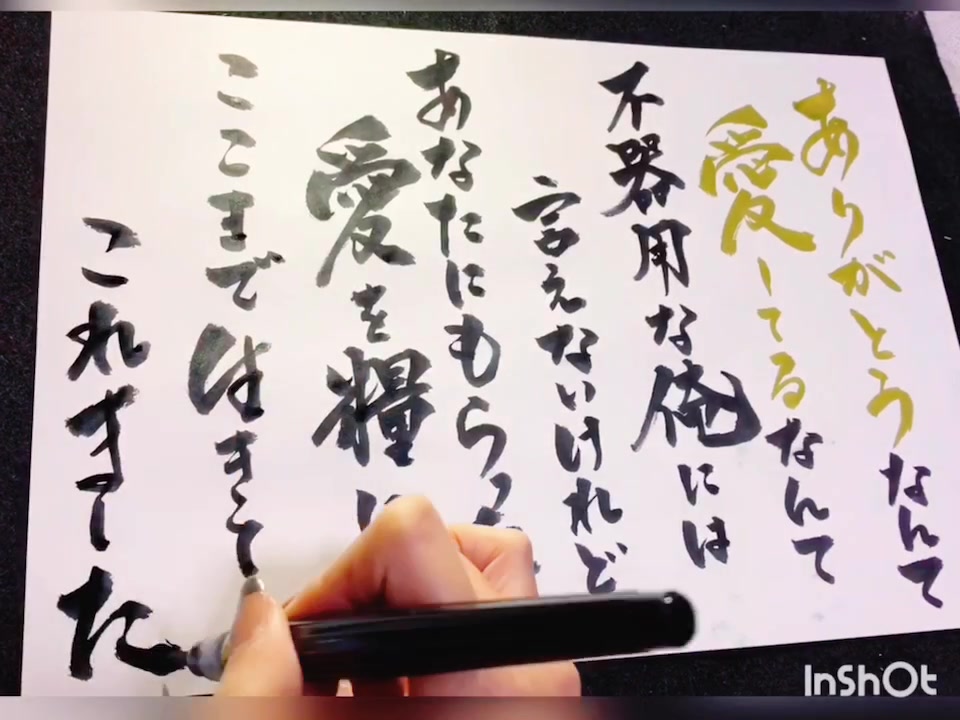 ありがとうなんて
愛してるなんて
不器用な俺には
言えないけれど
あなたにもら
愛を糧に
ここまで生きて
これました
InShOt